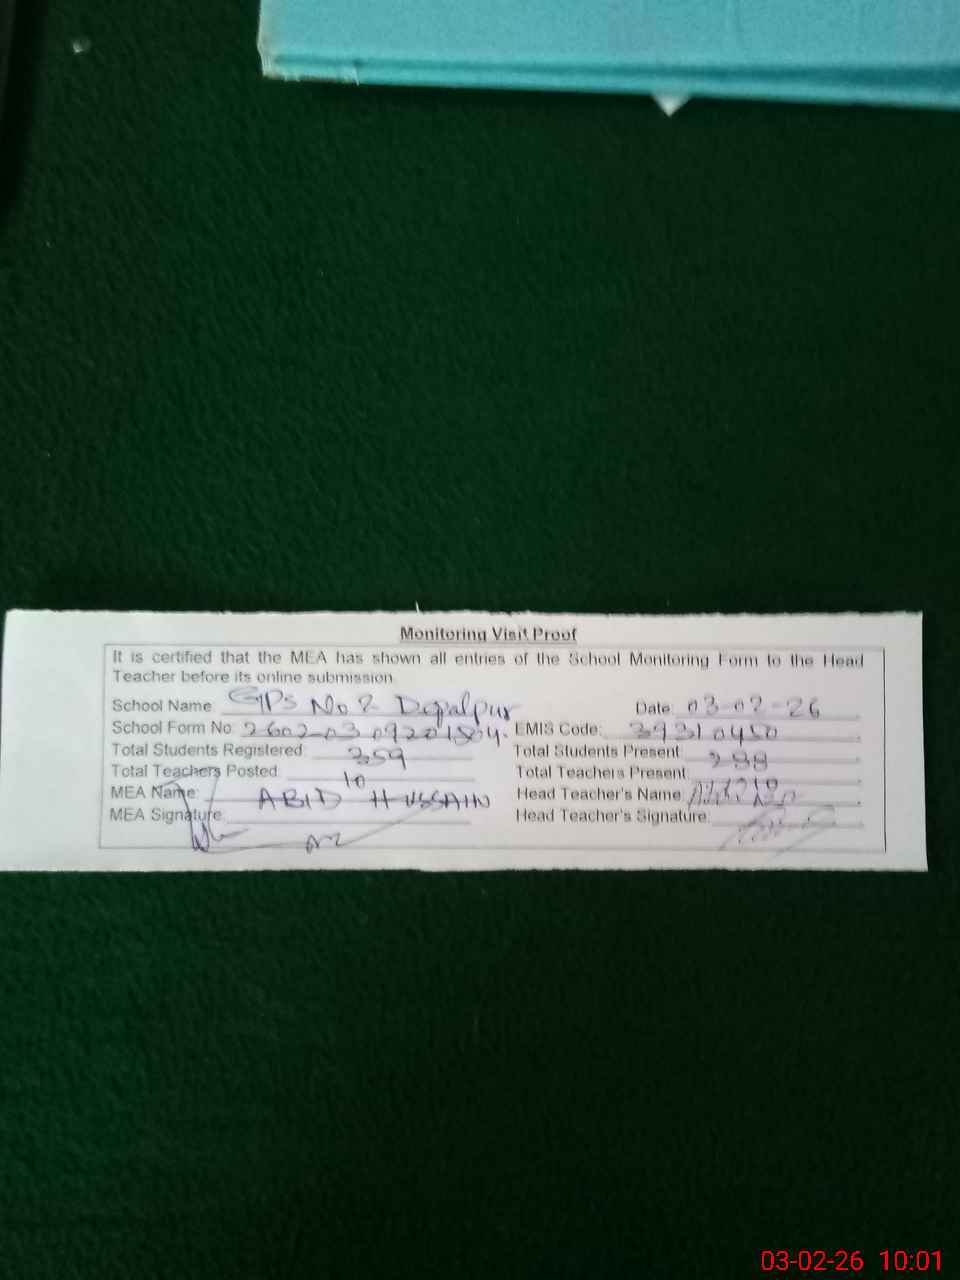 Monitoring Visit Proof
It is certified that the MEA has shown all entries of the School Monitoring Form to the Head
Teacher before its online submission.
School Name GPS No 2 Depalpur Date: 03-02-26
School Form No: EMIS Code: 39310450
Total Students Registered: 359 Total Students Present: 288
Total Teachers Posted: 10 Total Teachers Present: 10
MEA Name: ABID HUSSAIN Head Teacher's Name:
MEA Signature: Head Teacher's Signature:
03-02-26 10:01